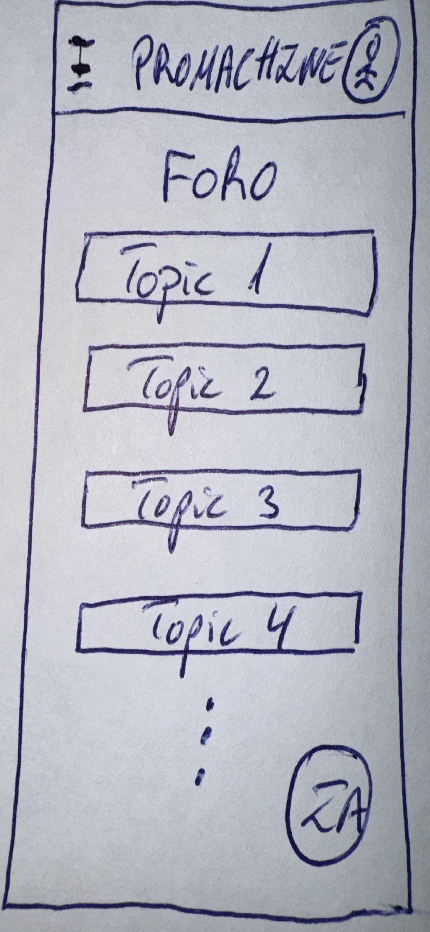 PROMACHINE
Foro
Topic 1
Topic 2
Topic 3
Topic 4
IA